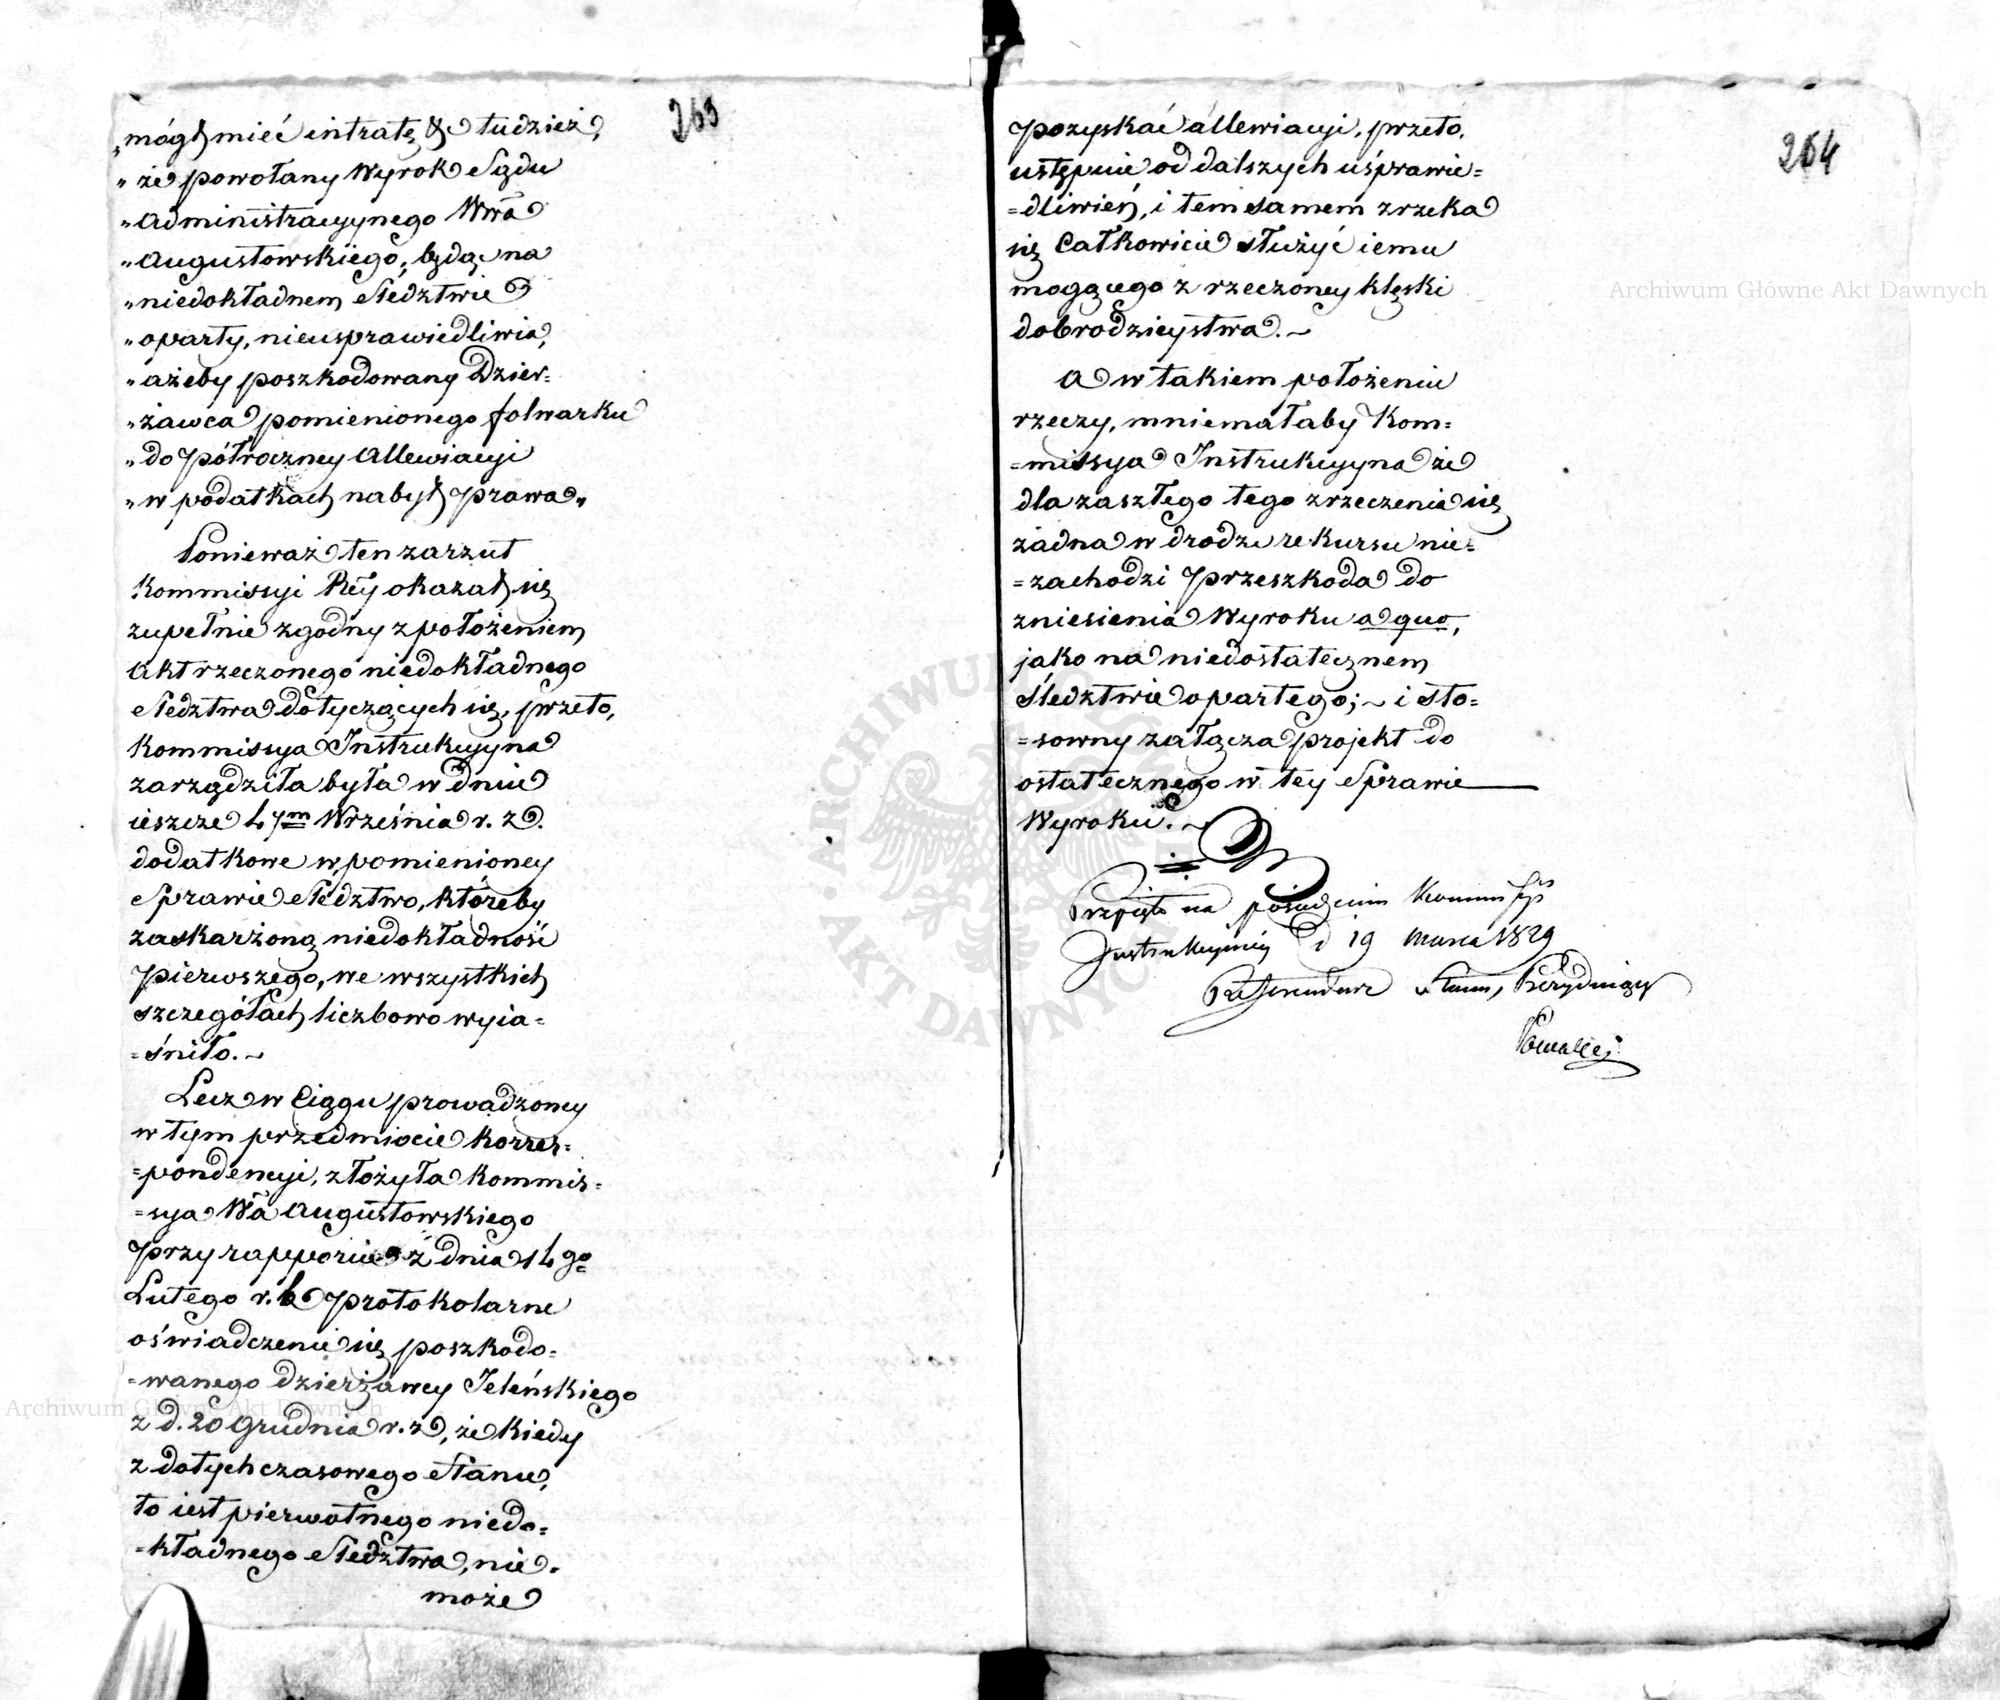 263
„mógł mieć intratę &c tudzież,
„że powołany Wyrok Sądu
„Administracyynego Wwa
„Augustowskiego, będąc na
„niedokładnem śledztwie
„oparty, nieusprawiedliwia,
„ażeby poszkodowany Dzier=
„żawca pomienionego folwarku
„do półroczney Allewiacyi
„w podatkach nabył prawa„
Ponieważ ten zarzut
Kommissyi Rey okazał się
zupełnie zgodny z położeniem
Akt rzeczonego niedokładnego
śledztwa dotyczących się, przeto,
Kommissya Instrukcyyna
zarządziła była w dniu
ieszcze 4ym Września r. z.
dodatkowe w pomienioney
Sprawie śledztwo, któreby
zaskarżoną niedokładność
pierwszego, we wszystkich
szczegółach liczbowo wyia=
=śniło.~
Lecz w Ciągu prowadzoney
w tym przedmiocie korres=
=pondencyi, złożyła Kommis=
=sya Wa Augustowskiego
przy rapporcie z dnia 14go
Lutego r. b. protokolarne
oświadczenie się poszkodo=
=wanego dzierżawcy Jeleńskiego
z d. 20 Grudnia r. z, że kiedy
z dotychczasowego Stanu,
to iest pierwotnego niedo=
=kładnego śledztwa, nie=
może
264
pozyskać allewiacyi, przeto,
ustępuie od dalszych uśprawie=
=dliwień, i tem samem zrzeka
się Całkowicie służyć iemu
mogącego z rzeczoney klęski
dobrodzieystwa.~
A w takiem położeniu
rzeczy, mniemałaby Kom=
=missya Instrukcyyna że
dla zaszłego tego zrzeczenia się
żadna w drodze rekursu nie=
=zachodzi przeszkoda do
zniesienia Wyroku a quo,
jako na niedostatecznem
śledztwie opartego;~ i sto=
=sowny załącza projekt do
ostatecznego w tey Sprawie
Wyroku.~
Przyięto na posiedzeniu Kommissyi
Instrukcyiney d 19 Marca 1829
Referendarz Stanu, Prezyduiący
Archiwum Główne Akt Dawnych
Archiwum Główne Akt Dawnych